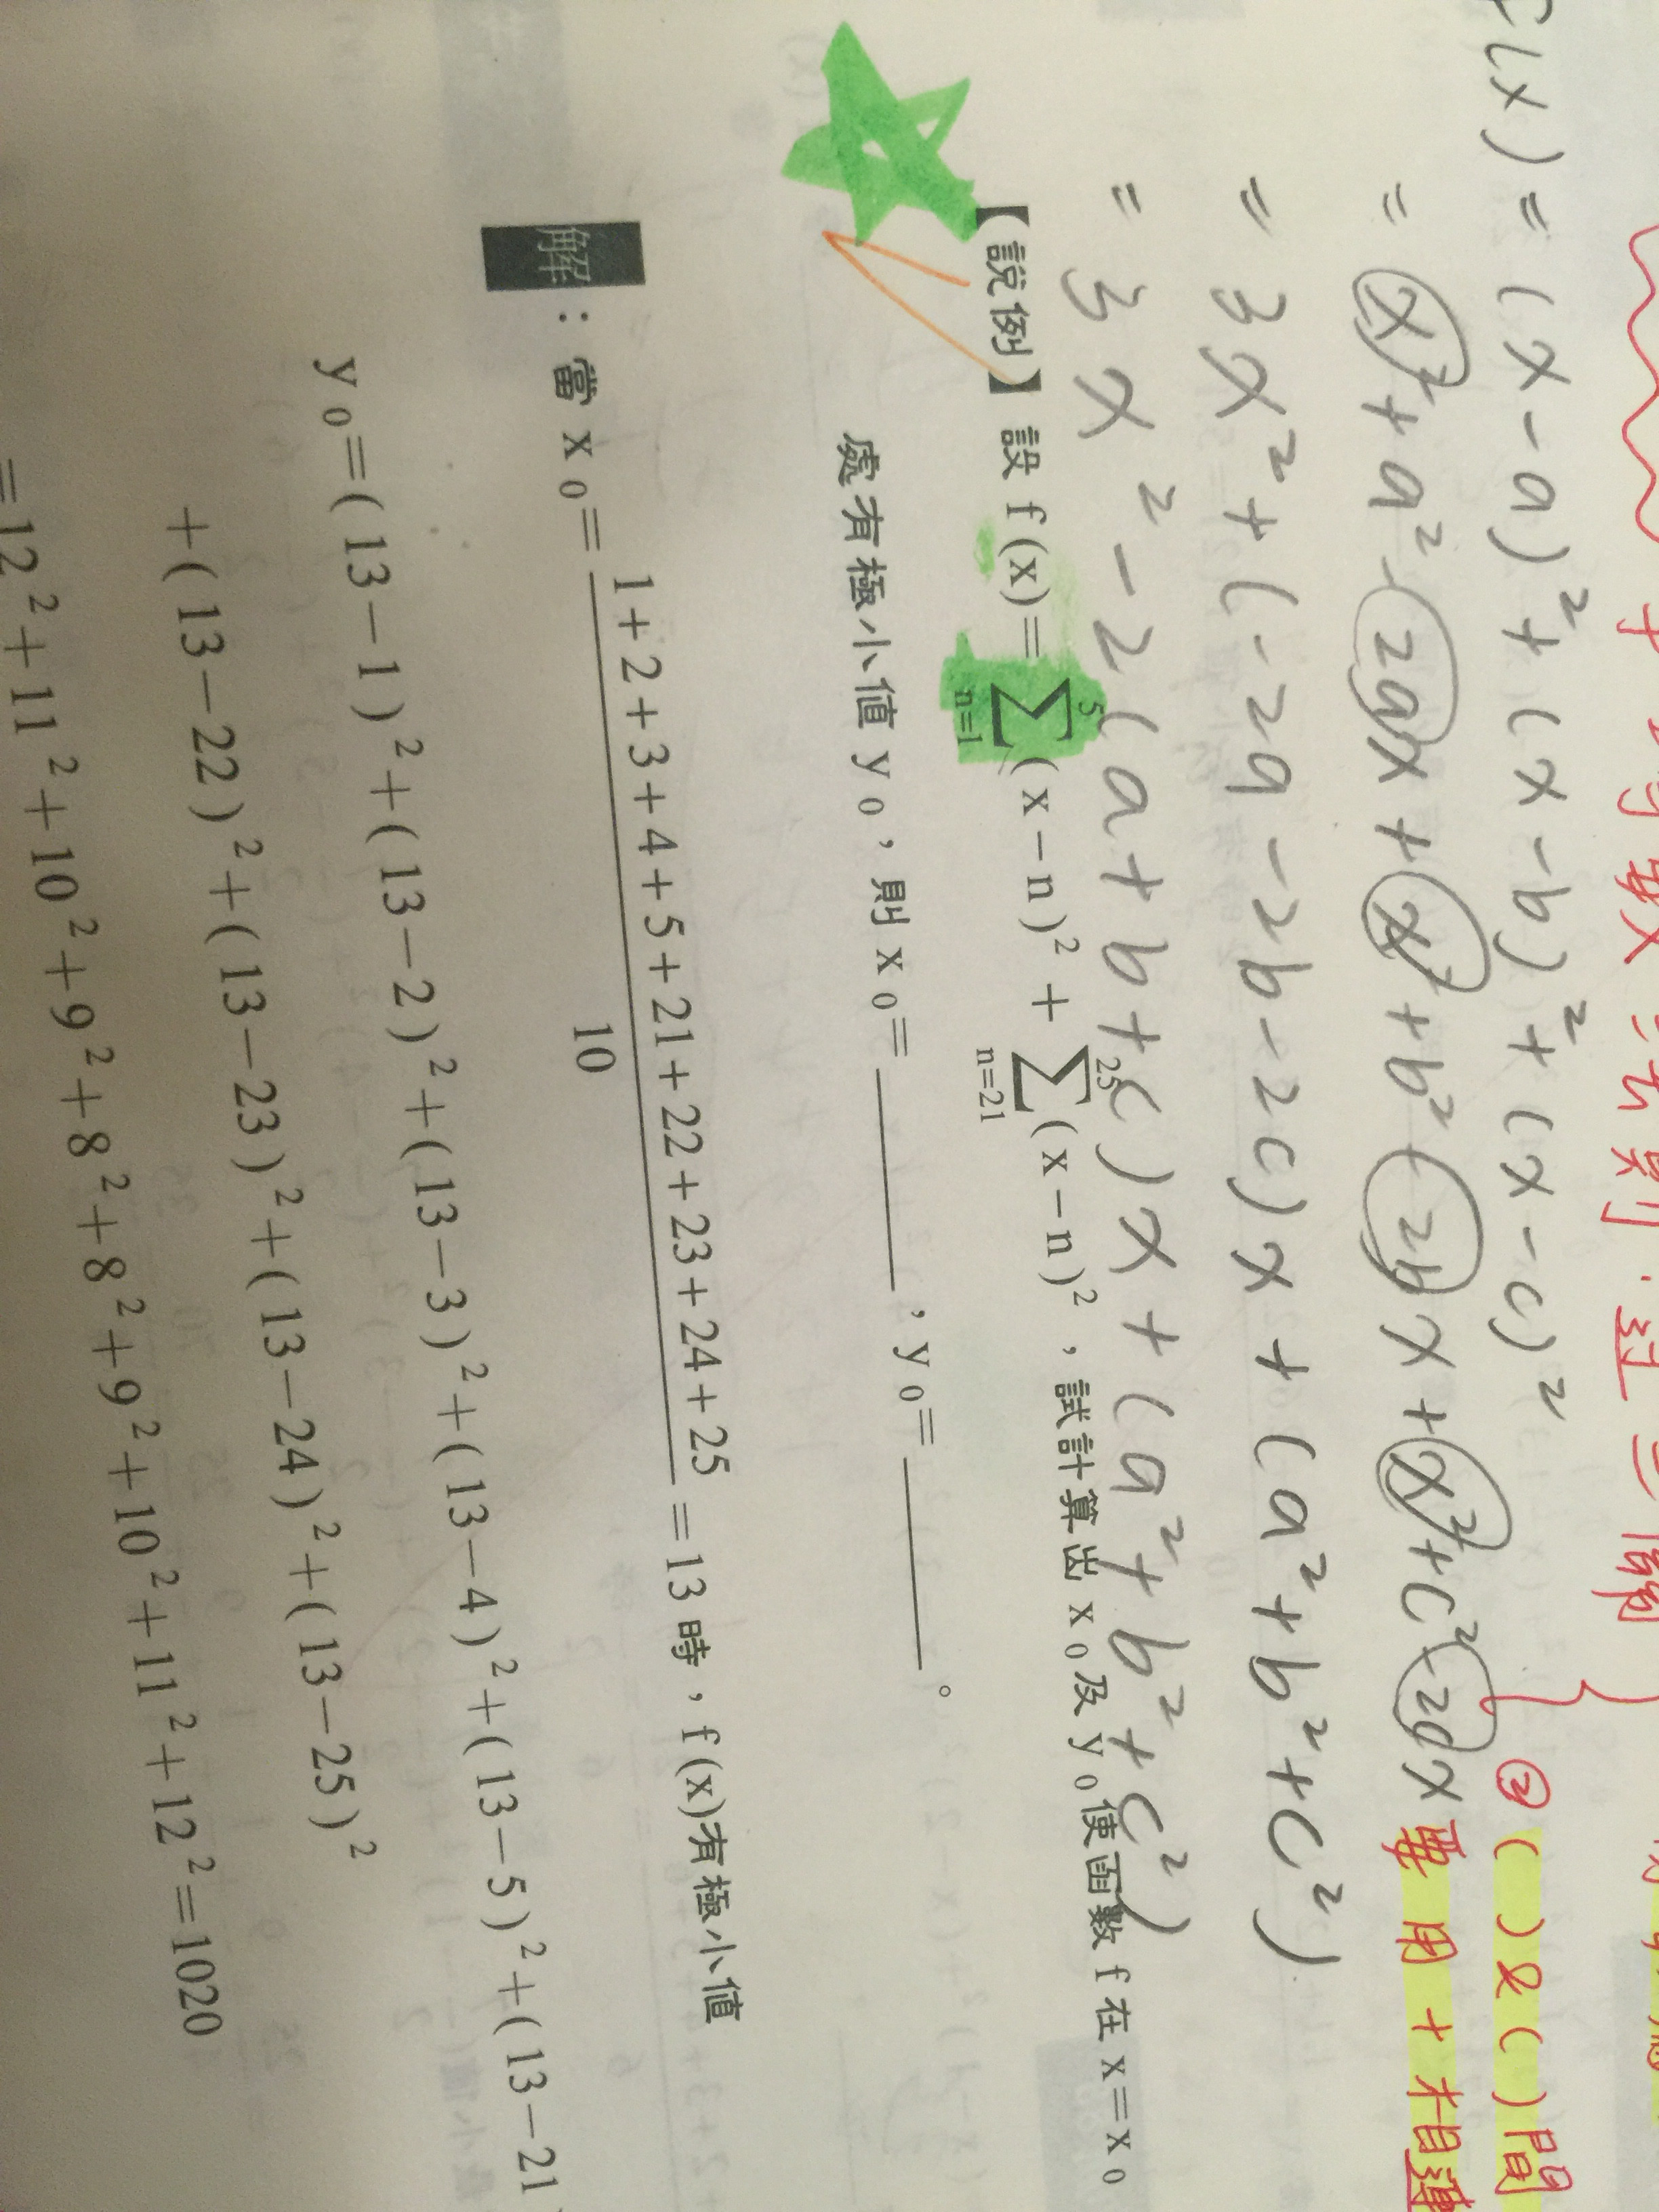 f(x) = (x-a)² + (x-b)² + (x-c)²
② ( ) & ( ) 間
= x² + a² - 2ax + x² + b² - 2bx + x² + c² - 2cx
要用 + 相連
= 3x² + (-2a-2b-2c)x + (a²+b²+c²)
= 3x² - 2(a+b+c)x + (a²+b²+c²)
【說例】設 f(x)=∑_{n=1}^{5}(x-n)²+∑_{n=21}^{25}(x-n)²,試計算出 x₀及 y₀使函數 f 在 x=x₀
處有極小值 y₀,則 x₀=______,y₀=______。
解:當 x₀=\frac{1+2+3+4+5+21+22+23+24+25}{10}=13 時,f(x)有極小值
y₀=(13-1)²+(13-2)²+(13-3)²+(13-4)²+(13-5)²+(13-21)
+(13-22)²+(13-23)²+(13-24)²+(13-25)²
=12²+11²+10²+9²+8²+8²+9²+10²+11²+12²=1020